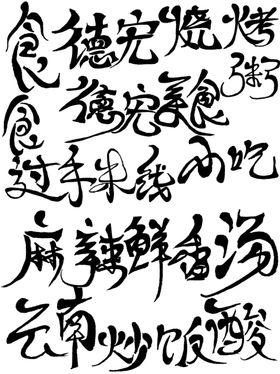 食德宏烧烤
粥
德宏美食
食
过手米线小吃
麻辣鲜香汤
云南炒饭酸